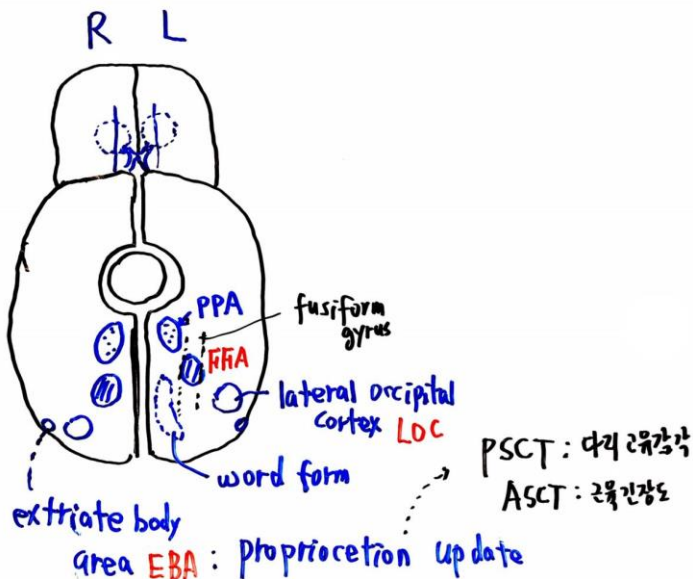 R L
PPA
fusiform
gyrus
FFA
lateral occipital
cortex LOC
word form
extriate body
area EBA : propriocetion update
PSCT : 다리 고유감각
ASCT : 근육긴장도